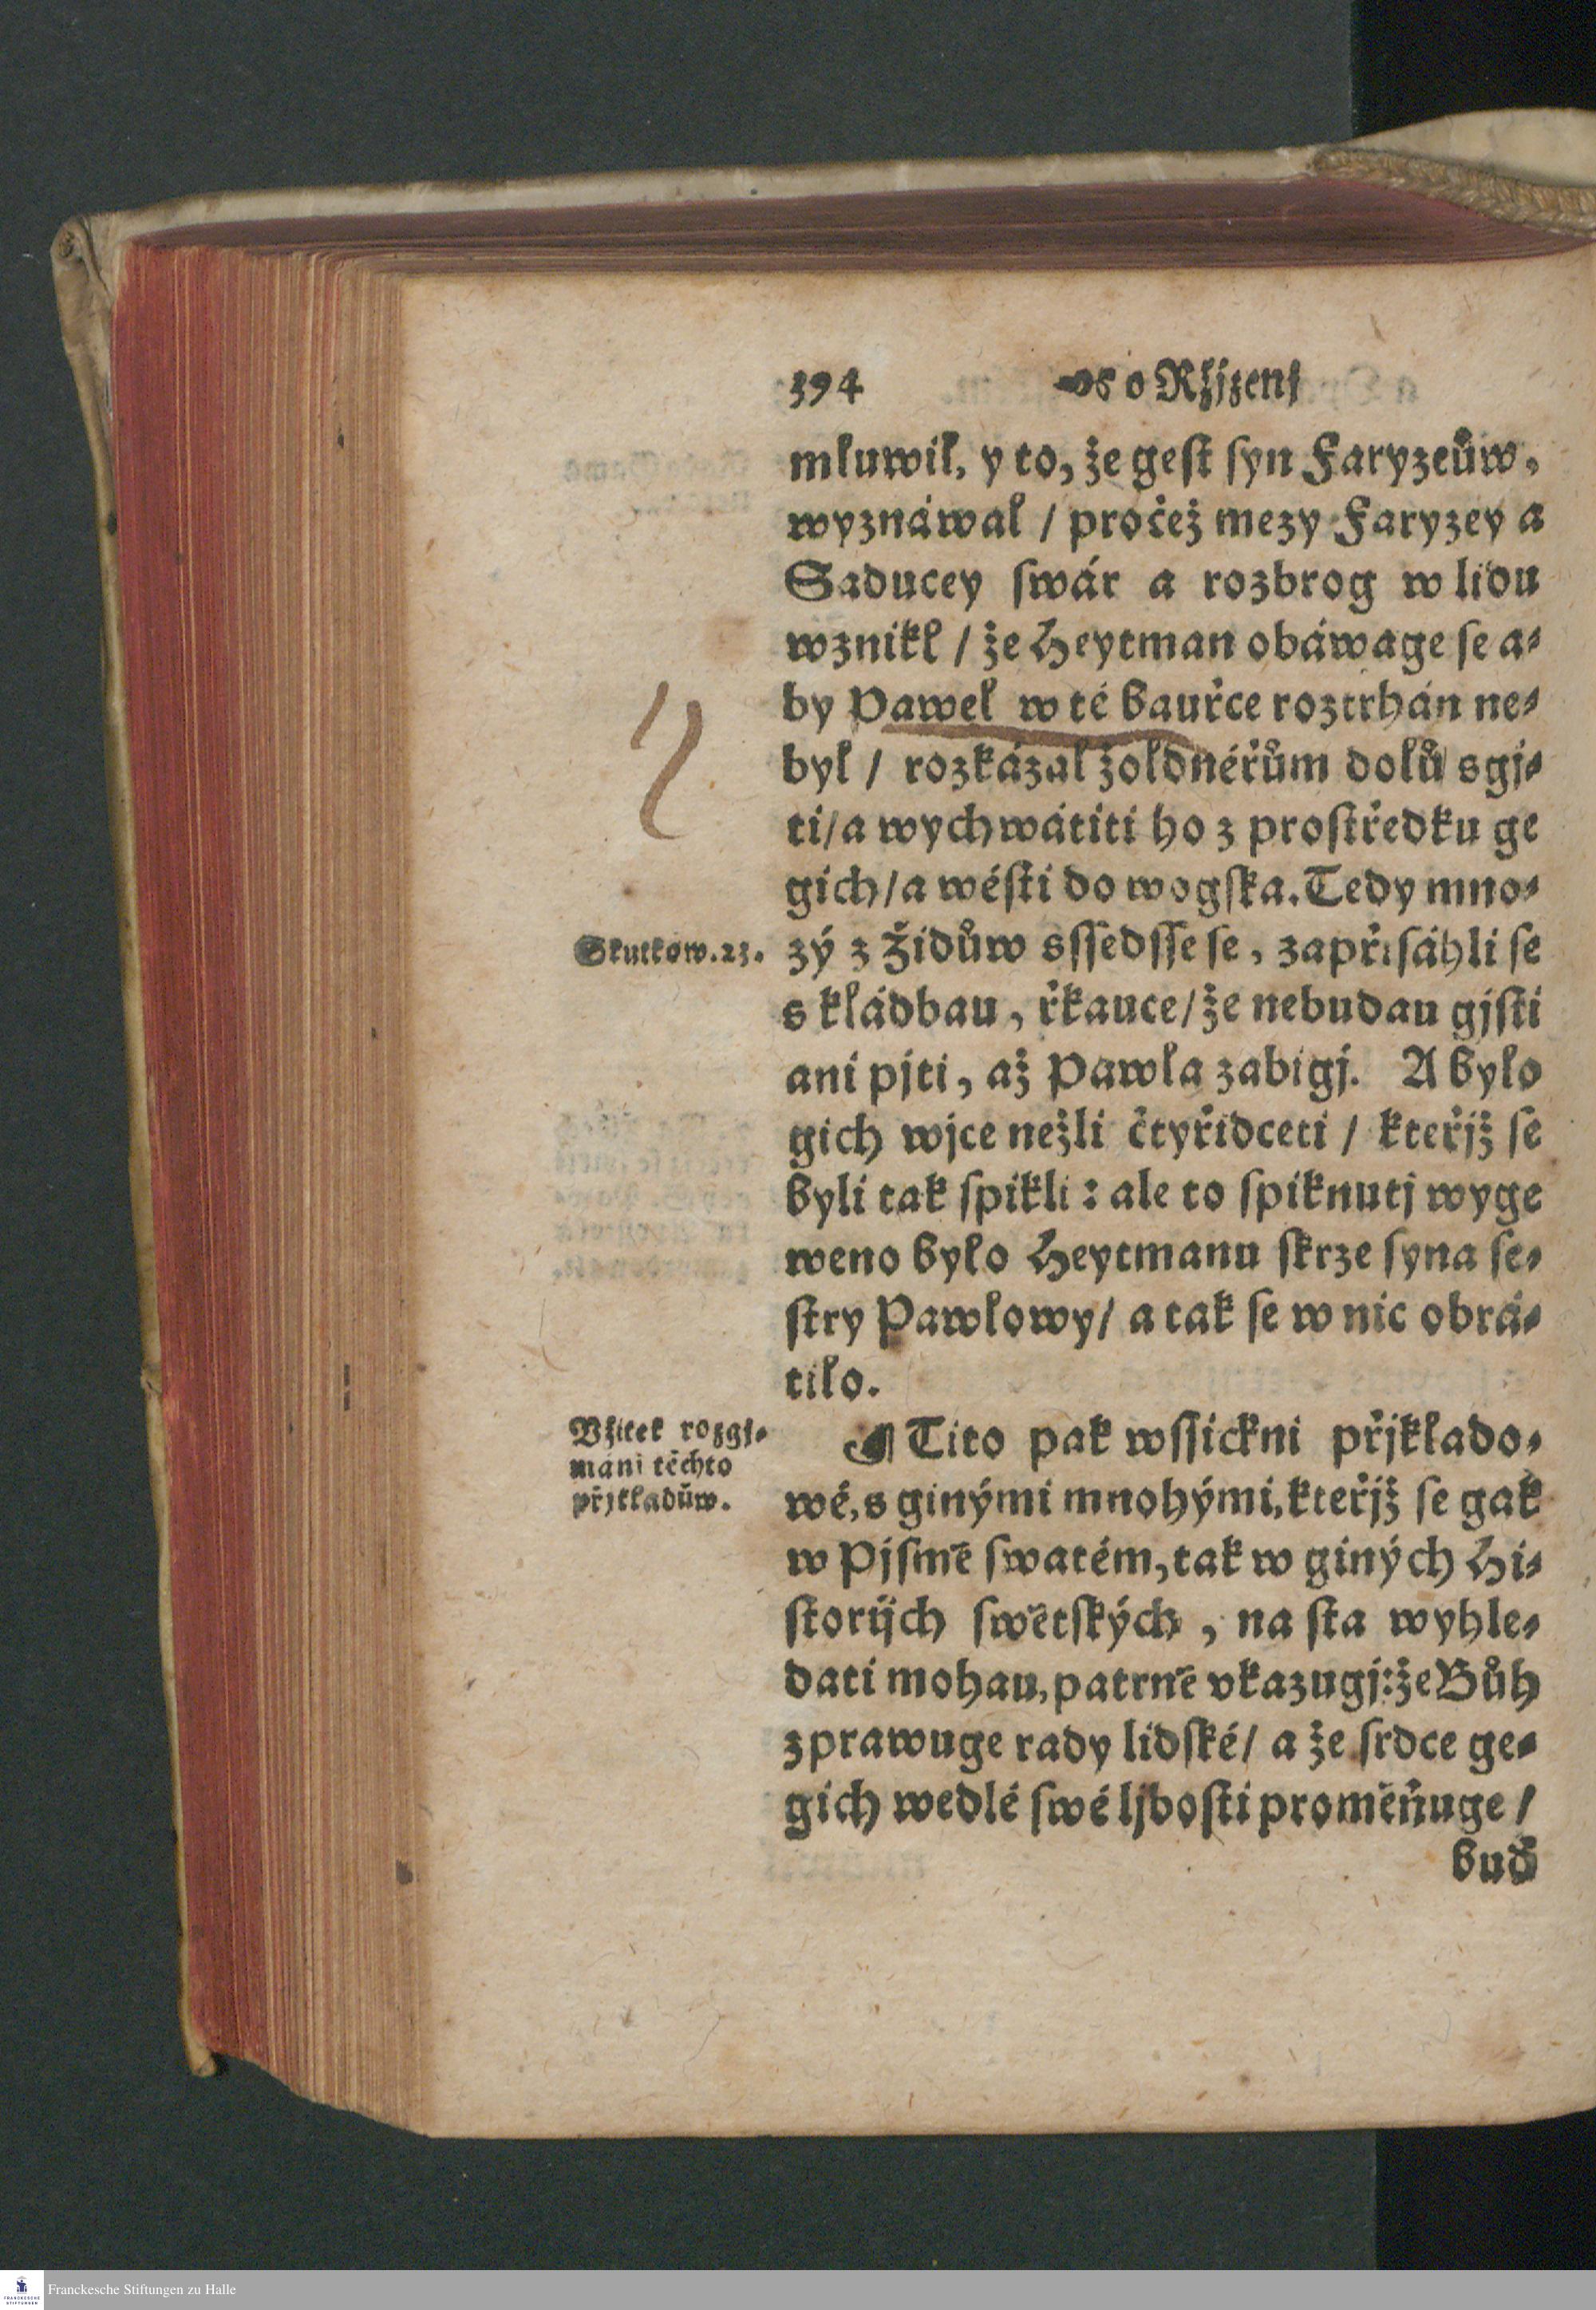 394 o Ržjzenj
mluwil, y to, že geſt ſyn Faryzeůw,
wyznáwal / pročež mezy Faryzey a
Saducey ſwár a rozbrog w lidu
wznikl / že Heytman obáwage ſe a-
by Pawel w té bauřce roztrhán ne-
byl / rozkázal žoldnéřům dolů sgj-
ti/a wychwátiti ho z proſtředku ge
gich/a wéſti do wogſka. Tedy mno-
Skutkow. 23.
zý z Židůw sſſedſſe ſe, zapřiſáhli ſe
s kládbau, řkauce/že nebudau gjſti
ani pjti, až Pawla zabigj. A bylo
gich wjce nežli čtyřidceti / kteřjž ſe
byli tak ſpikli : ale to ſpiknutj wyge
weno bylo Heytmanu ſkrze ſyna ſe-
ſtry Pawlowy/ a tak ſe w nic obrá-
tilo.
Vžitek rozgj-
máni těchto
přjkladůw.
¶ Tito pak wſſickni přjklado-
wé, s ginými mnohými, kteřjž ſe gak
w Pjſmě ſwatém, tak w giných Hi-
ſtorijch ſwětſkých, na ſta wyhle-
dati mohau, patrně vkazugj: že Bůh
zprawuge rady lidſké/ a že ſrdce ge-
gich wedlé ſwé ljboſti proměňuge /
buď
Franckesche Stiftungen zu Halle
FRANCKESCHE
STIFTUNGEN